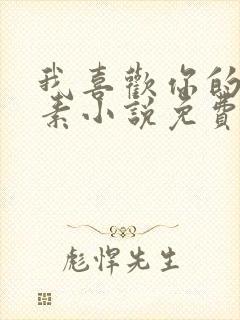 我喜歡你的
素小說免費
彪悍先生